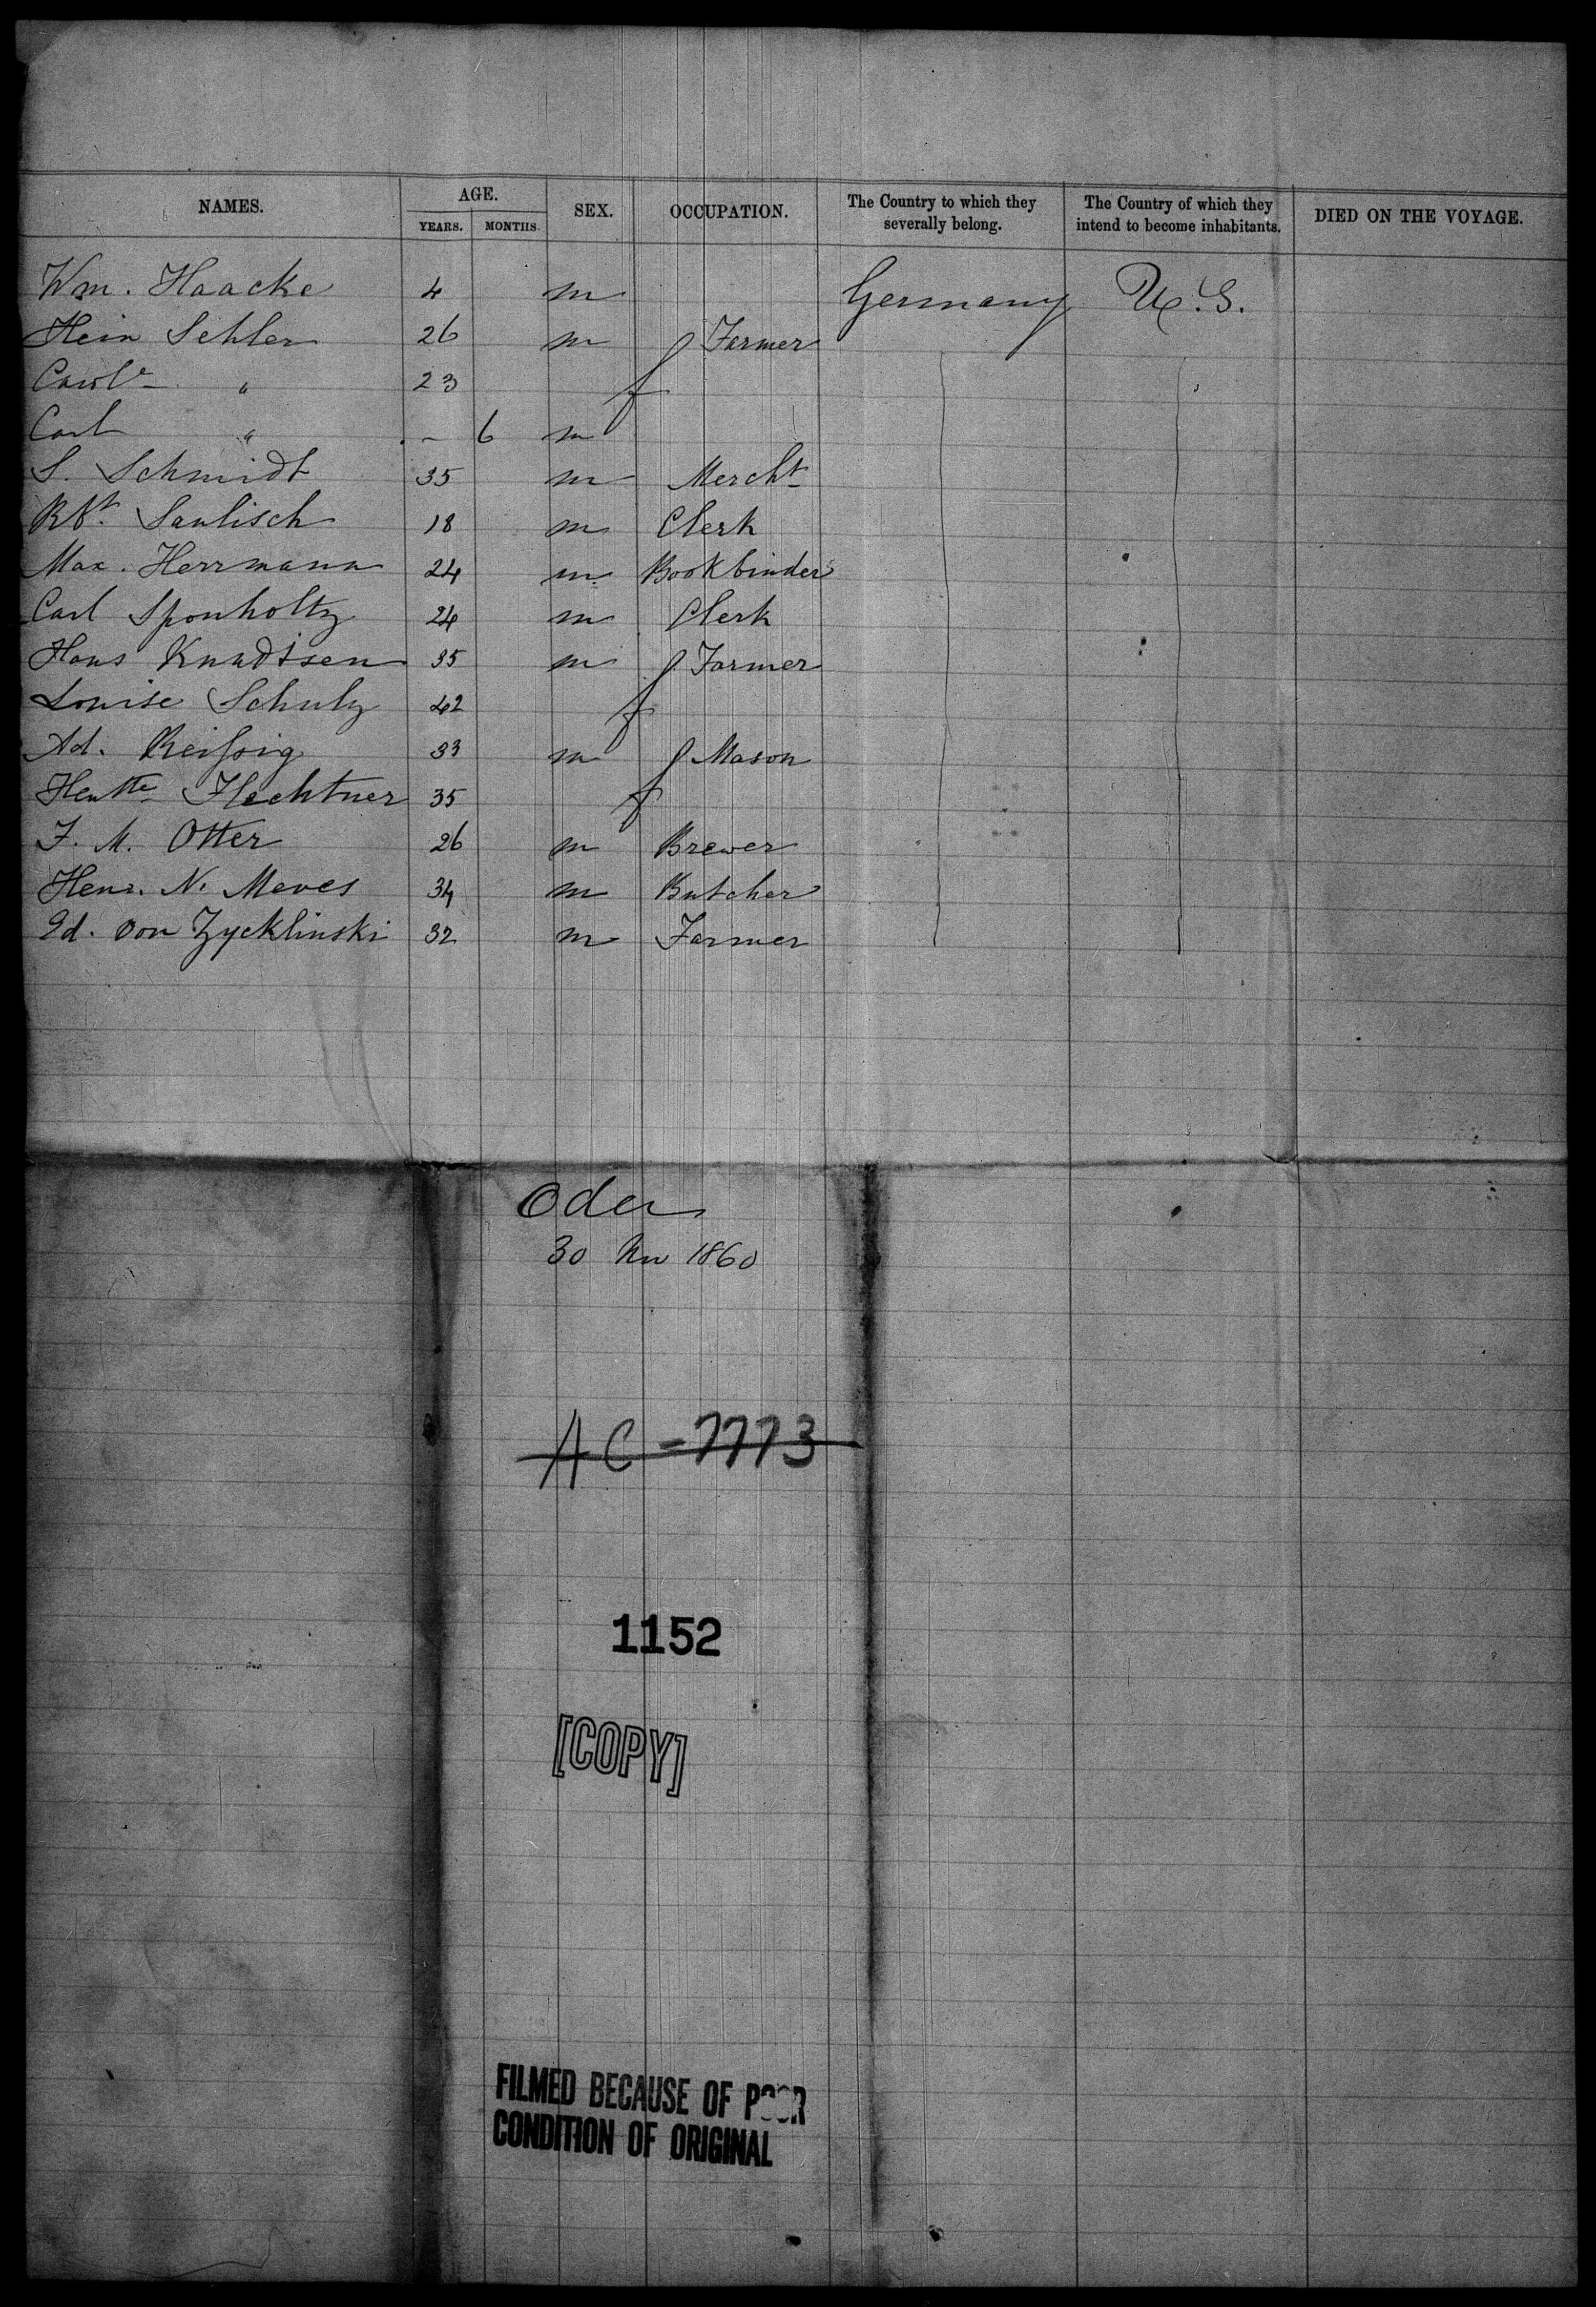 NAMES. AGE. SEX. OCCUPATION. The Country to which they severally belong. The Country of which they intend to become inhabitants. DIED ON THE VOYAGE.
YEARS. MONTHS.
Wm. Haacke 4 m Germany U.S.
Hein Sehler 26 m Farmer
Carole " 23 f
Carl " - 6 m
S. Schmidt 35 m Mercht
Rbt. Saulisch 18 m Clerk
Max. Herrmann 24 m Bookbinder
Carl Sponholtz 24 m Clerk
Hans Knudtsen 35 m Farmer
Louise Schulz 42 f
Ad. Reißig 33 m Mason
Hentte Flechtner 35 f
F. M. Otter 26 m Brewer
Henr. N. Meves 34 m Butcher
Ed. von Zycklinski 32 m Farmer
Oder
30 Nov 1860
AC-7773
1152
[COPY]
FILMED BECAUSE OF POOR
CONDITION OF ORIGINAL